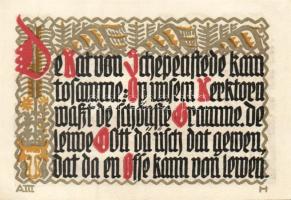 De Rat von Schepenstede kam
tosamme: Up unsem Kerktoren
waßt de schönste Gramme. de
lewe Gott da üsch dat gewen,
dat da en Osse kann von lewen.
A III
H